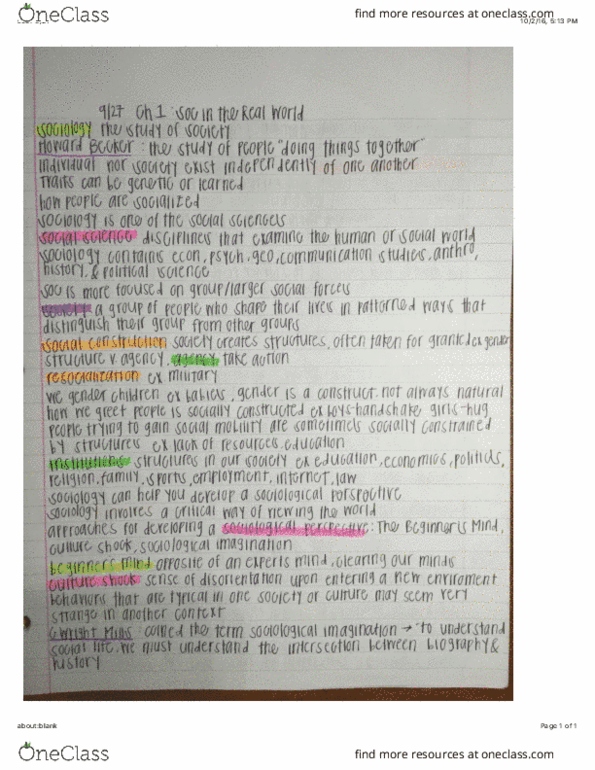 OneClass
find more resources at oneclass.com
10/2/16, 5:13 PM
9/27 Ch 1: soc in the Real World
sociology the study of society
Howard Becker: the study of people "doing things together"
individual nor society exist independently of one another
Traits can be genetic or learned
how people are socialized
sociology is one of the social sciences
social science disciplines that examine the human or social world
sociology contains econ, psych, geo, communication studies, anthro,
history, & political science
soc is more focused on group/larger social forces
society a group of people who shape their lives in patterned ways that
distinguish their group from other groups
social construction society creates structures, often taken for granted ex gender
structure v agency, agency take action
resocialization ex military
we gender children ex babies, gender is a construct, not always natural
how we greet people is socially constructed ex boys-handshake girls-hug
people trying to gain social mobility are sometimes socially constrained
by structures ex lack of resources, education
institutions structures in our society ex education, economics, politics,
religion, family, sports, employment, internet, law
sociology can help you develop a sociological perspective
sociology involves a critical way of viewing the world
approaches for developing a sociological perspective: The Beginner's Mind,
culture shock, sociological imagination
beginners mind opposite of an experts mind, clearing our minds
culture shock sense of disorientation upon entering a new enviroment
behaviors that are typical in one society or culture may seem very
strange in another context
C Wright Mills coined the term sociological imagination → "to understand
social life, we must understand the intersection between biography &
history
about:blank
Page 1 of 1
OneClass
find more resources at oneclass.com